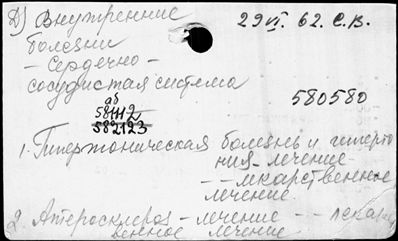 Д) Внутренние 29 VI. 62. С.В.
болезни
- Сердечно -
сосудистая система
580580
аб
58111/2
582123
1. Гипертоническая болезнь и гиперто
ния - лечение -
- - лекарственное
лечение.
2. Атеросклероз - лечение - - лекар
венное лечение